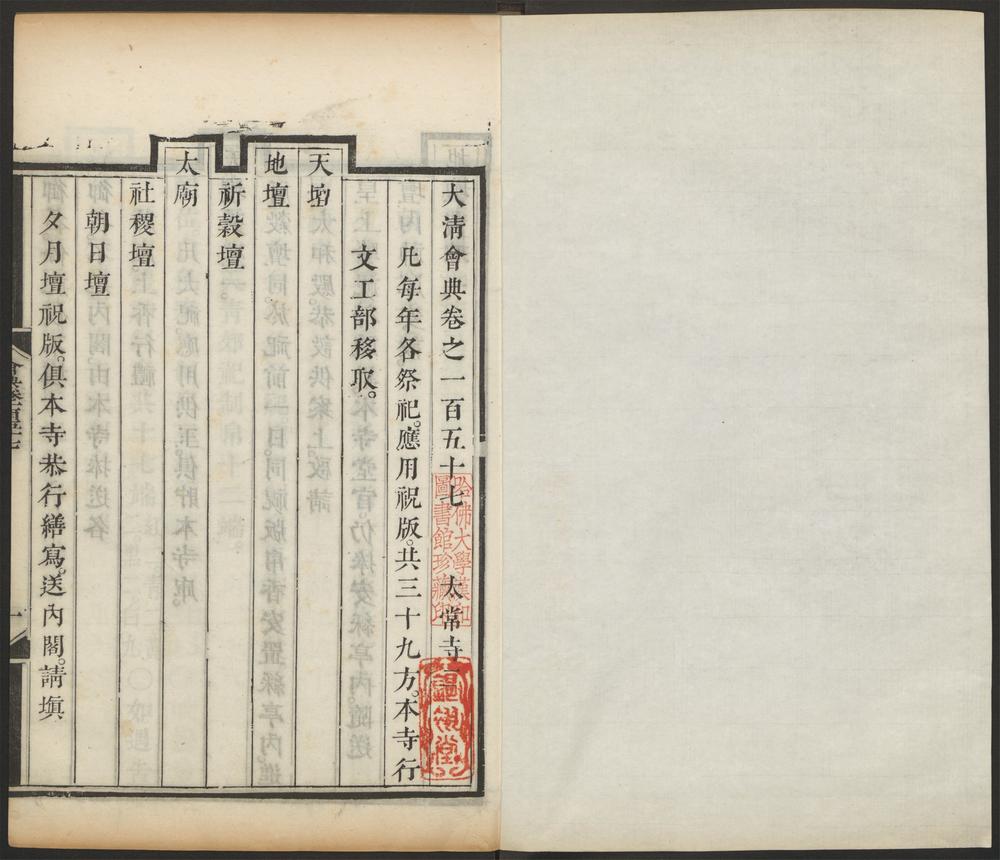 大清會典卷之一百五十七　太常寺二
凡每年各祭祀。應用祝版。共三十九方。本寺行
文工部移取。
天壇
地壇
祈穀壇
太廟
社稷壇
朝日壇
夕月壇祝版。俱本寺恭行繕寫。送內閣。請塡
哈佛大學漢和
圖書館珍藏印